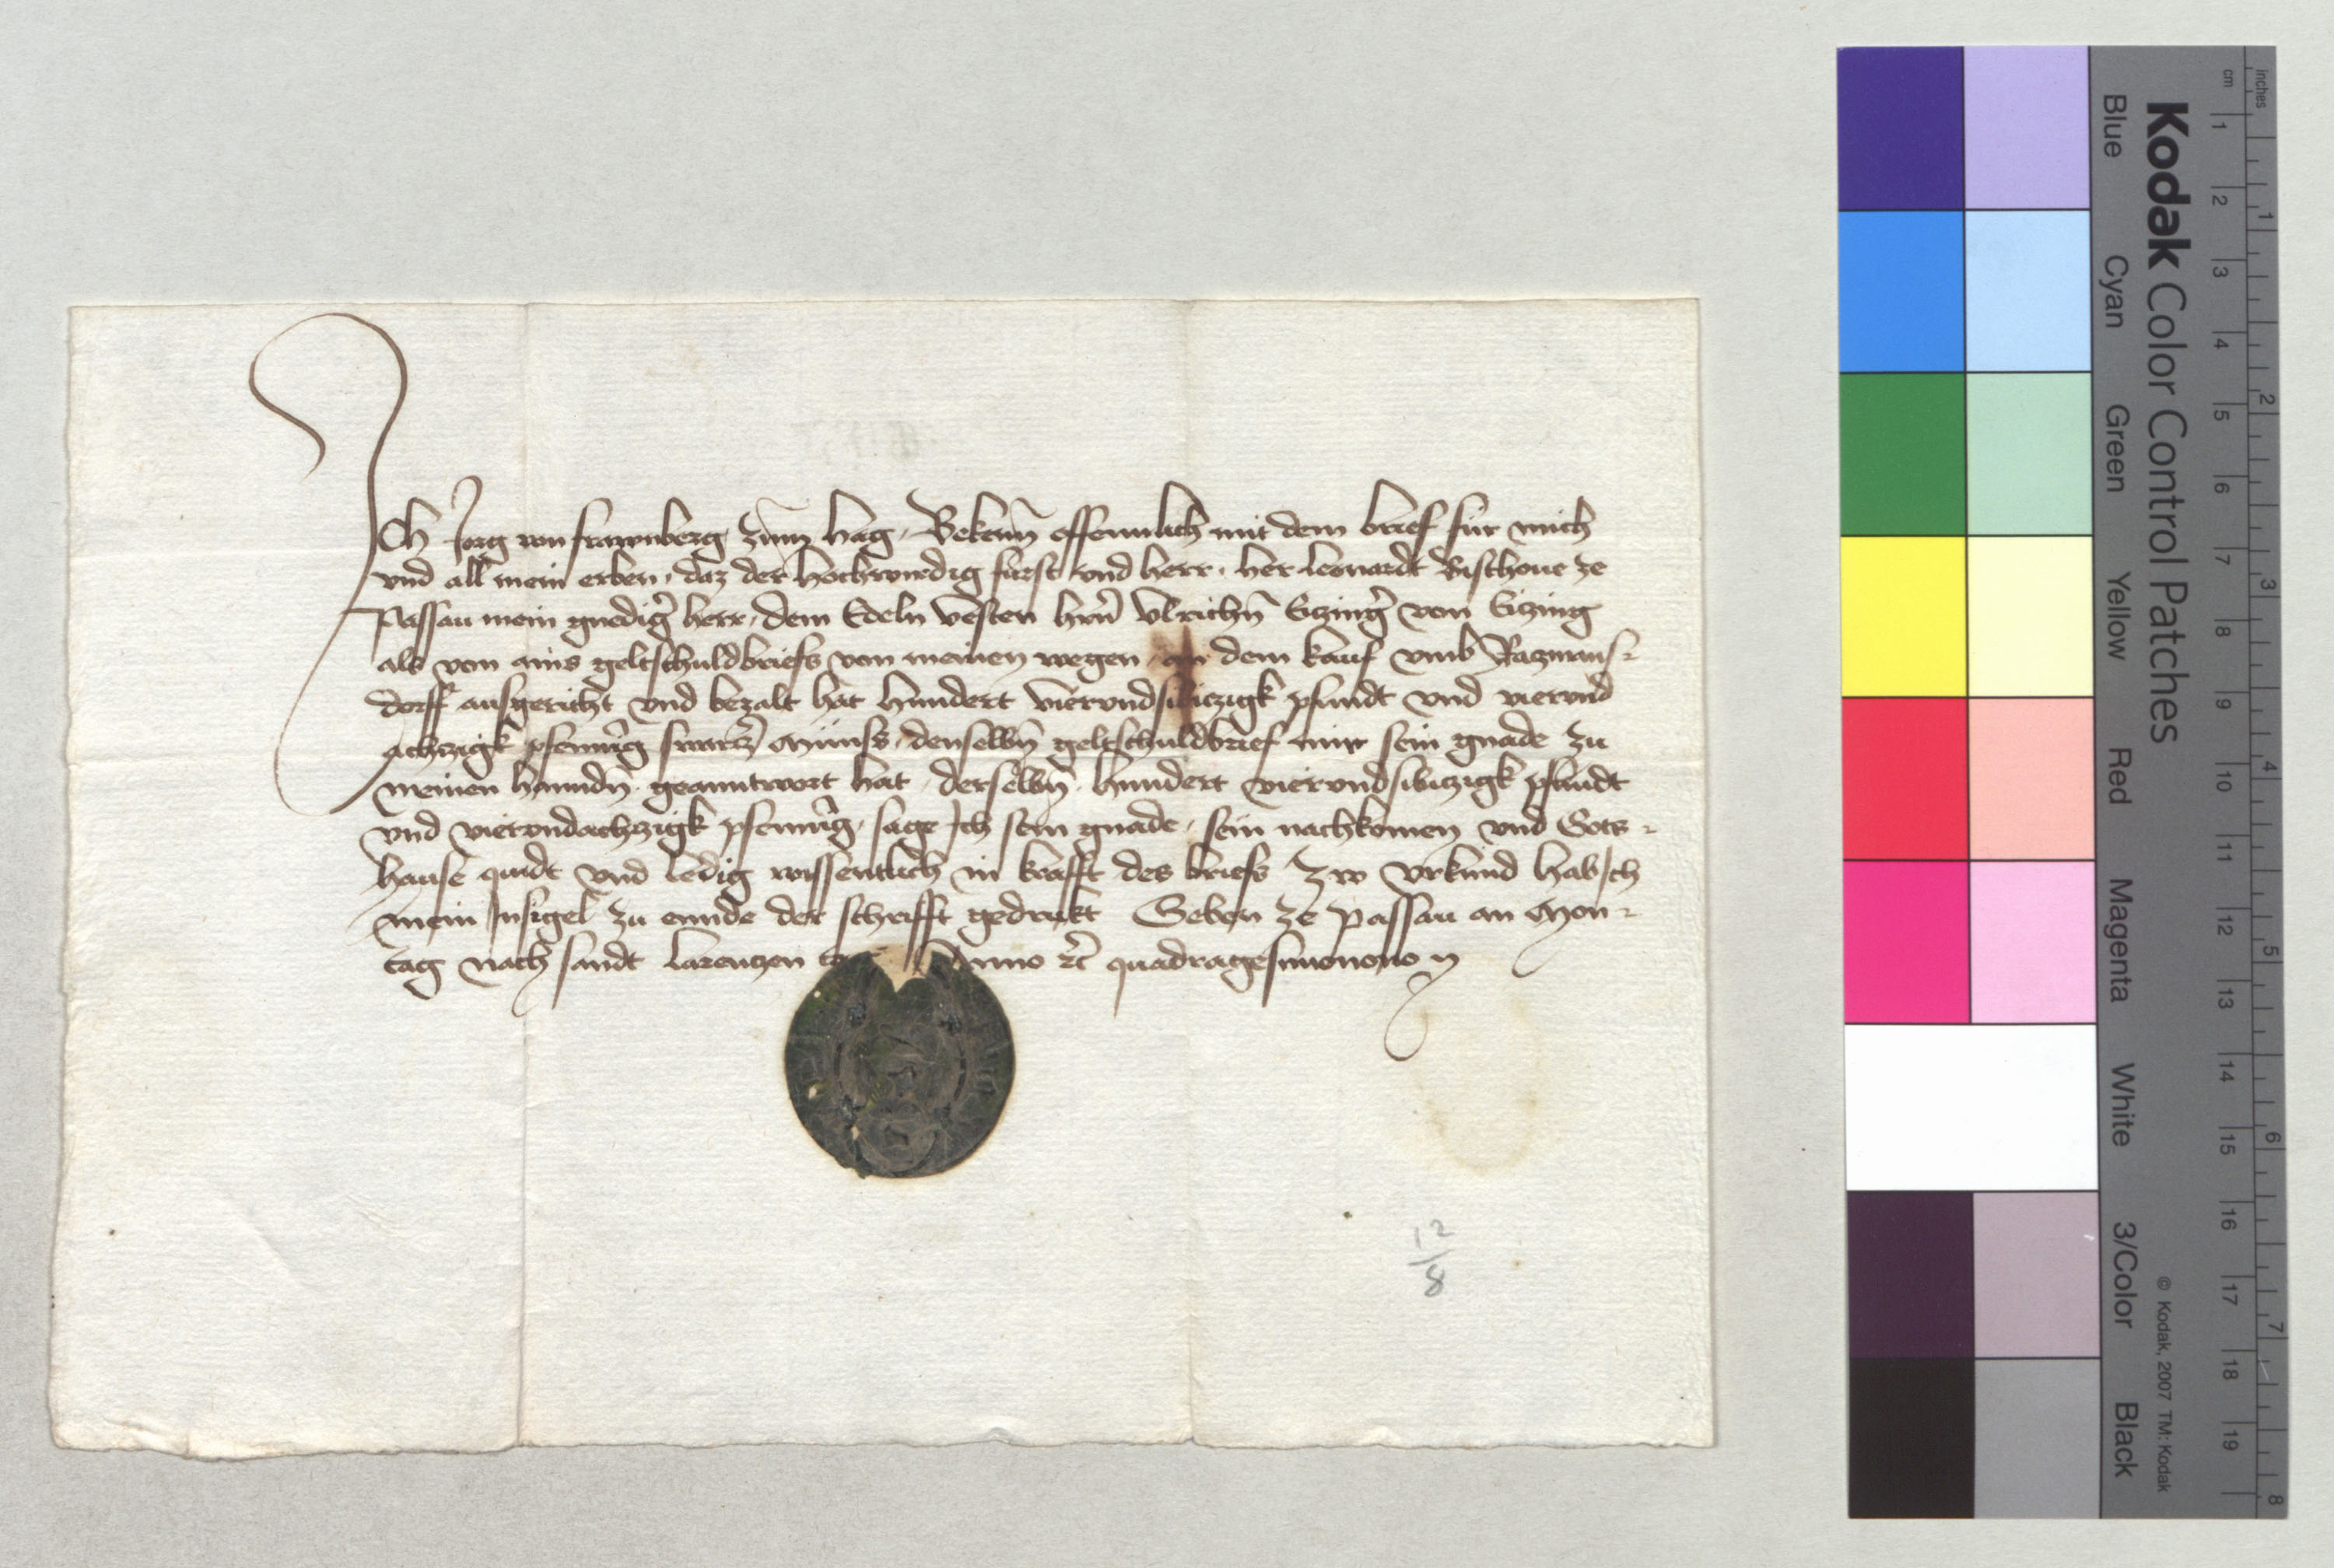 Ich Jorg von frawnberg zum Hag Bekenn offennlich mit dem brief für mich
vnd all mein erben, daz der Hochwirdig fürst vnd herr, her leonardt Bischoue ze
Passau mein gnediger herr, dem Edeln vesten hern Vlrichen Eizinger von Eizing
als von ains geltschuldbriefs von meinen wegen, an dem kauf vmb Razmans-
dorff ausgericht vnd bezalt hat Hundert vierundsibiczigk pfundt vnd vierund
achtzigk pfenning swartzer Münss, denselben geltschuldbrief mir sein gnade zu
meinen hannden geanntwort hat, derselben hundert vierundsibiczigk pfundt
vnd vierundachtzigk pfenning, sage Ich sein gnade, sein nachkomen vnd Gots-
hause quidt vnd ledig wissentlich in krafft des briefs Zw vrkund hab Ich
mein Insigel zu ennde der schrifft gedrukt Geben ze Passau an Mon-
tag nach sandt larentzen Anno etc quadragesimonono
12
8
Kodak Color Control Patches
Blue Cyan Green Yellow Red Magenta White 3/Color Black
© Kodak, 2007 TM: Kodak
cm 1 2 3 4 5 6 7 8 9 10 11 12 13 14 15 16 17 18 19
inches 1 2 3 4 5 6 7 8